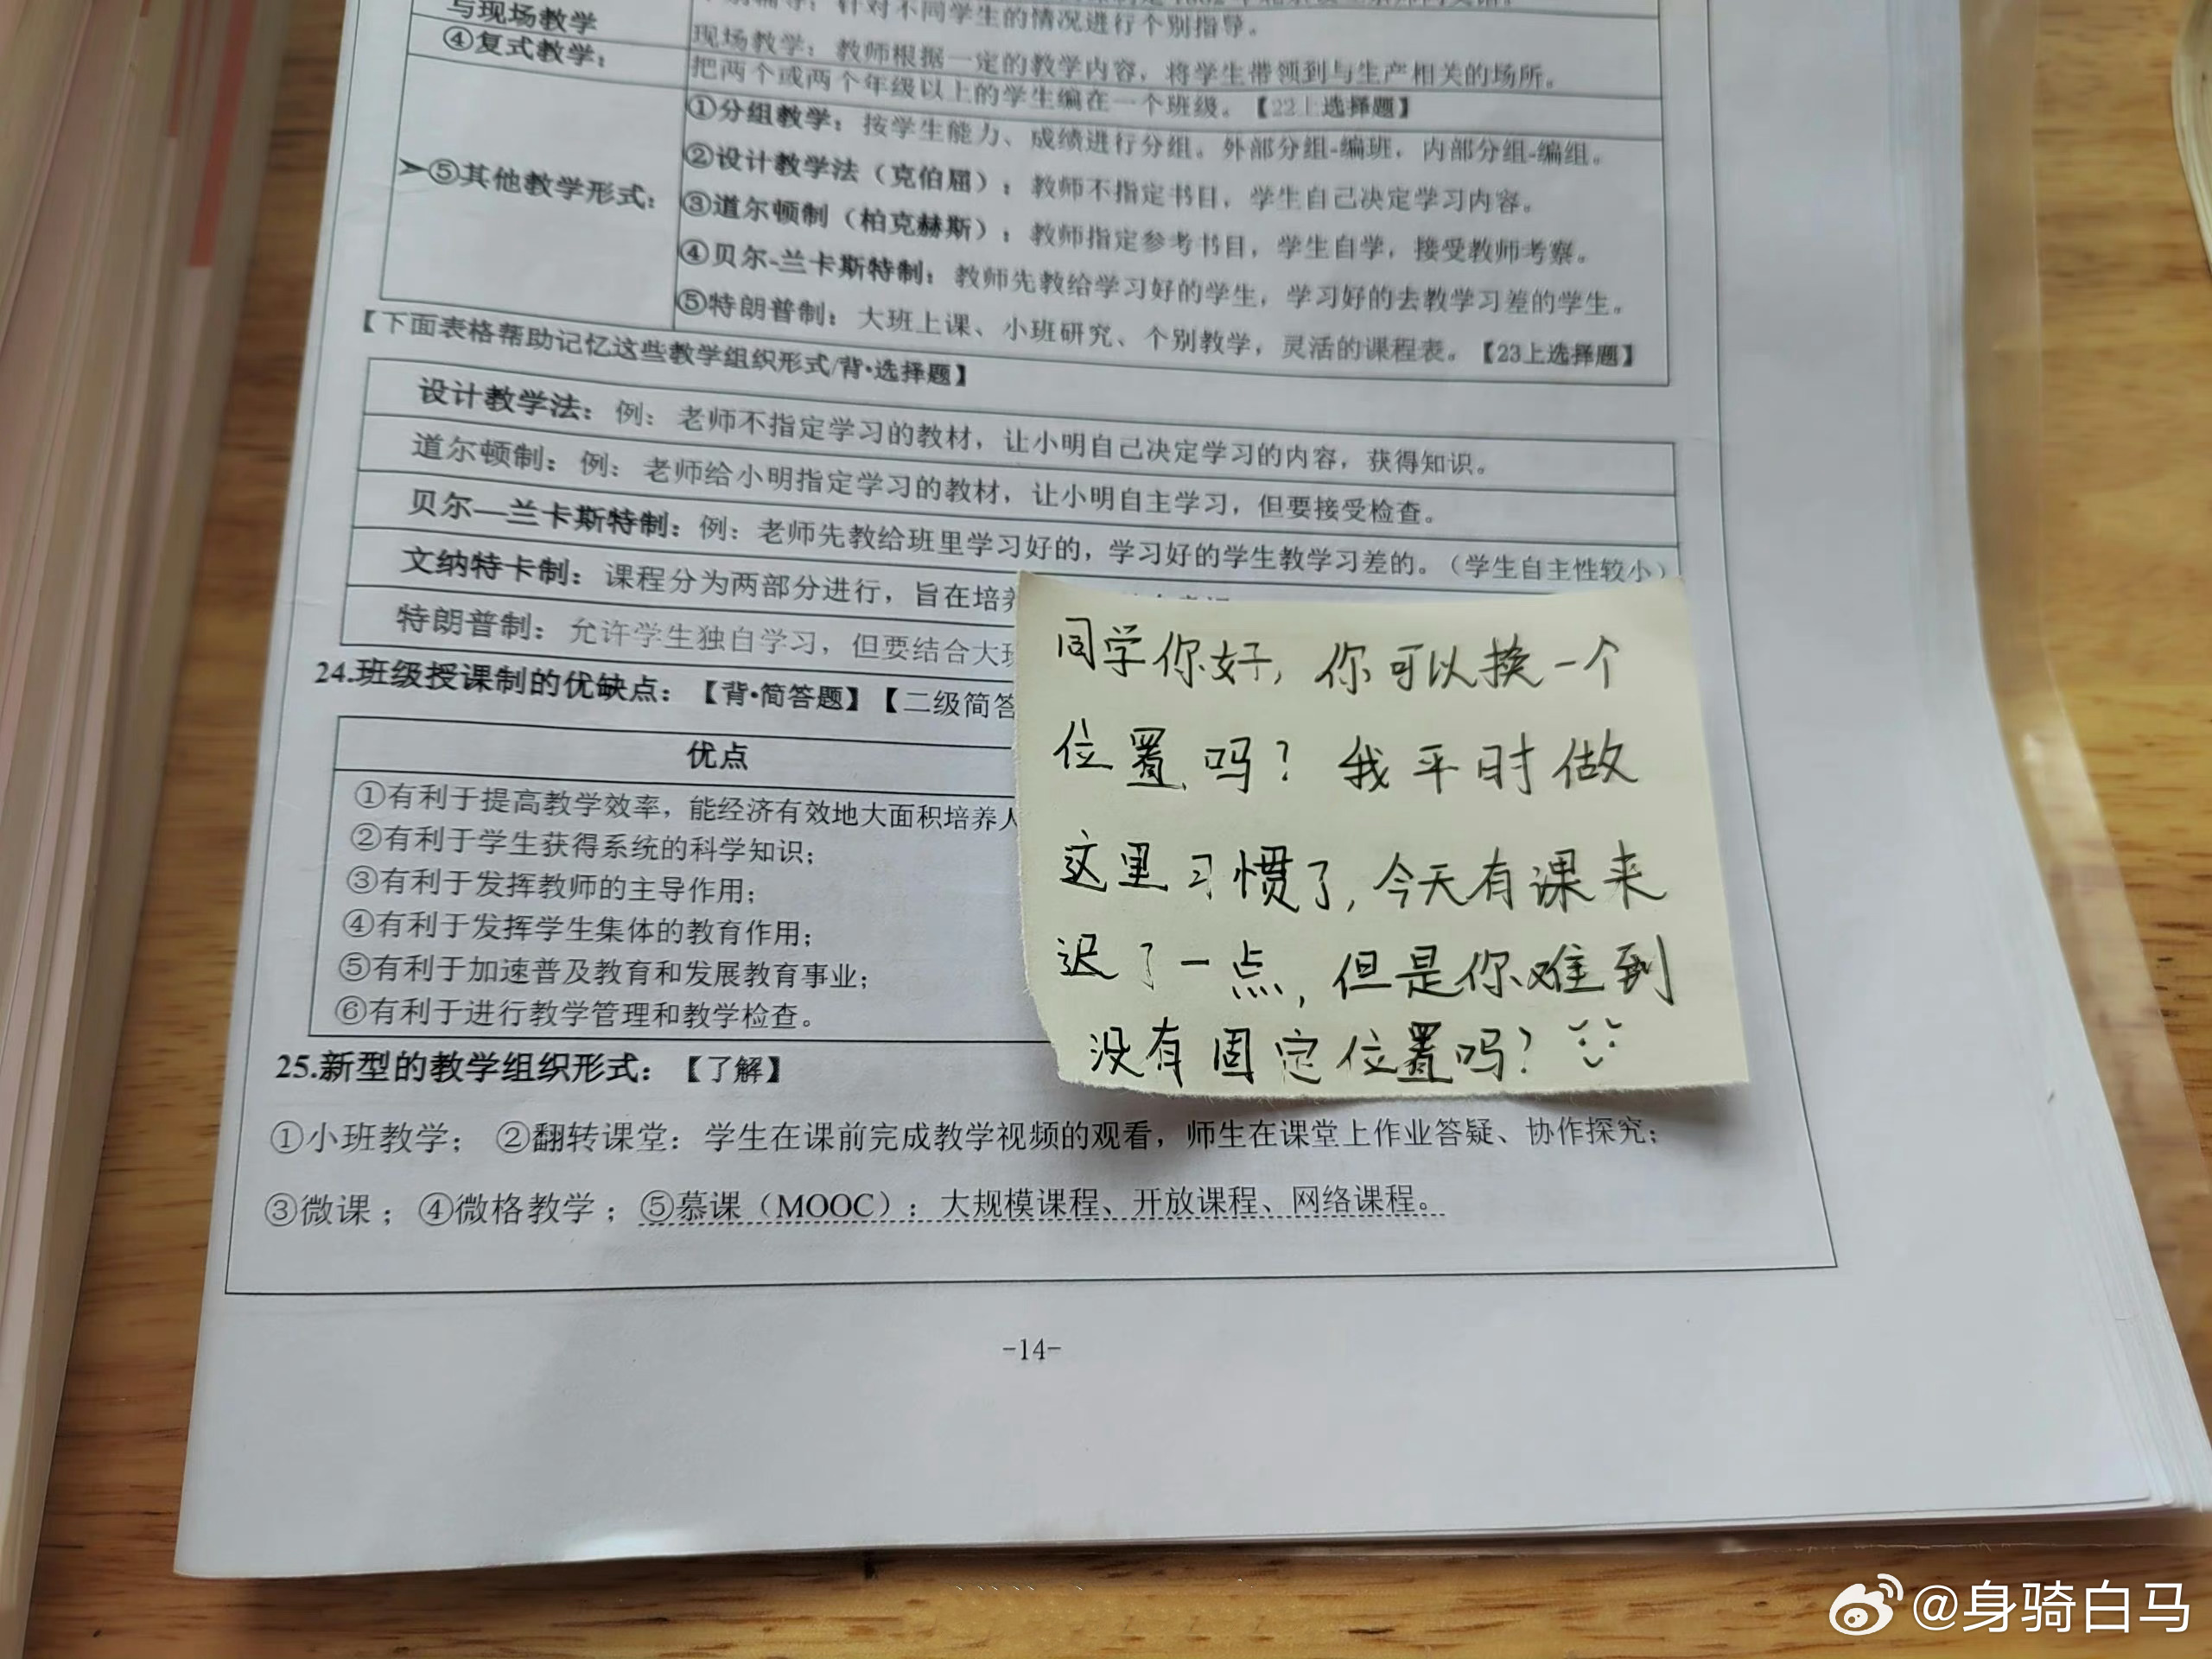 与现场教学
针对不同学生的情况进行个别指导。
现场教学：教师根据一定的教学内容，将学生带领到与生产相关的场所。
④复式教学：
把两个或两个年级以上的学生编在一个班级。【22上选择题】
➢⑤其他教学形式：
①分组教学：按学生能力、成绩进行分组。外部分组-编班，内部分组-编组。
②设计教学法（克伯屈）：教师不指定书目，学生自己决定学习内容。
③道尔顿制（柏克赫斯）：教师指定参考书目，学生自学，接受教师考察。
④贝尔-兰卡斯特制：教师先教给学习好的学生，学习好的去教学习差的学生。
⑤特朗普制：大班上课、小班研究、个别教学，灵活的课程表。【23上选择题】
【下面表格帮助记忆这些教学组织形式/背·选择题】
设计教学法：例：老师不指定学习的教材，让小明自己决定学习的内容，获得知识。
道尔顿制：例：老师给小明指定学习的教材，让小明自主学习，但要接受检查。
贝尔—兰卡斯特制：例：老师先教给班里学习好的，学习好的学生教学习差的。（学生自主性较小）
文纳特卡制：课程分为两部分进行，旨在培养
特朗普制：允许学生独自学习，但要结合大班
24.班级授课制的优缺点：【背·简答题】【二级简答
优点
①有利于提高教学效率，能经济有效地大面积培养人
②有利于学生获得系统的科学知识；
③有利于发挥教师的主导作用；
④有利于发挥学生集体的教育作用；
⑤有利于加速普及教育和发展教育事业；
⑥有利于进行教学管理和教学检查。
同学你好，你可以换一个
位置吗？我平时做
这里习惯了，今天有课来
迟了一点，但是你难到
没有固定位置吗？
25.新型的教学组织形式：【了解】
①小班教学； ②翻转课堂：学生在课前完成教学视频的观看，师生在课堂上作业答疑、协作探究；
③微课； ④微格教学； ⑤慕课（MOOC）：大规模课程、开放课程、网络课程。
-14-
@身骑白马